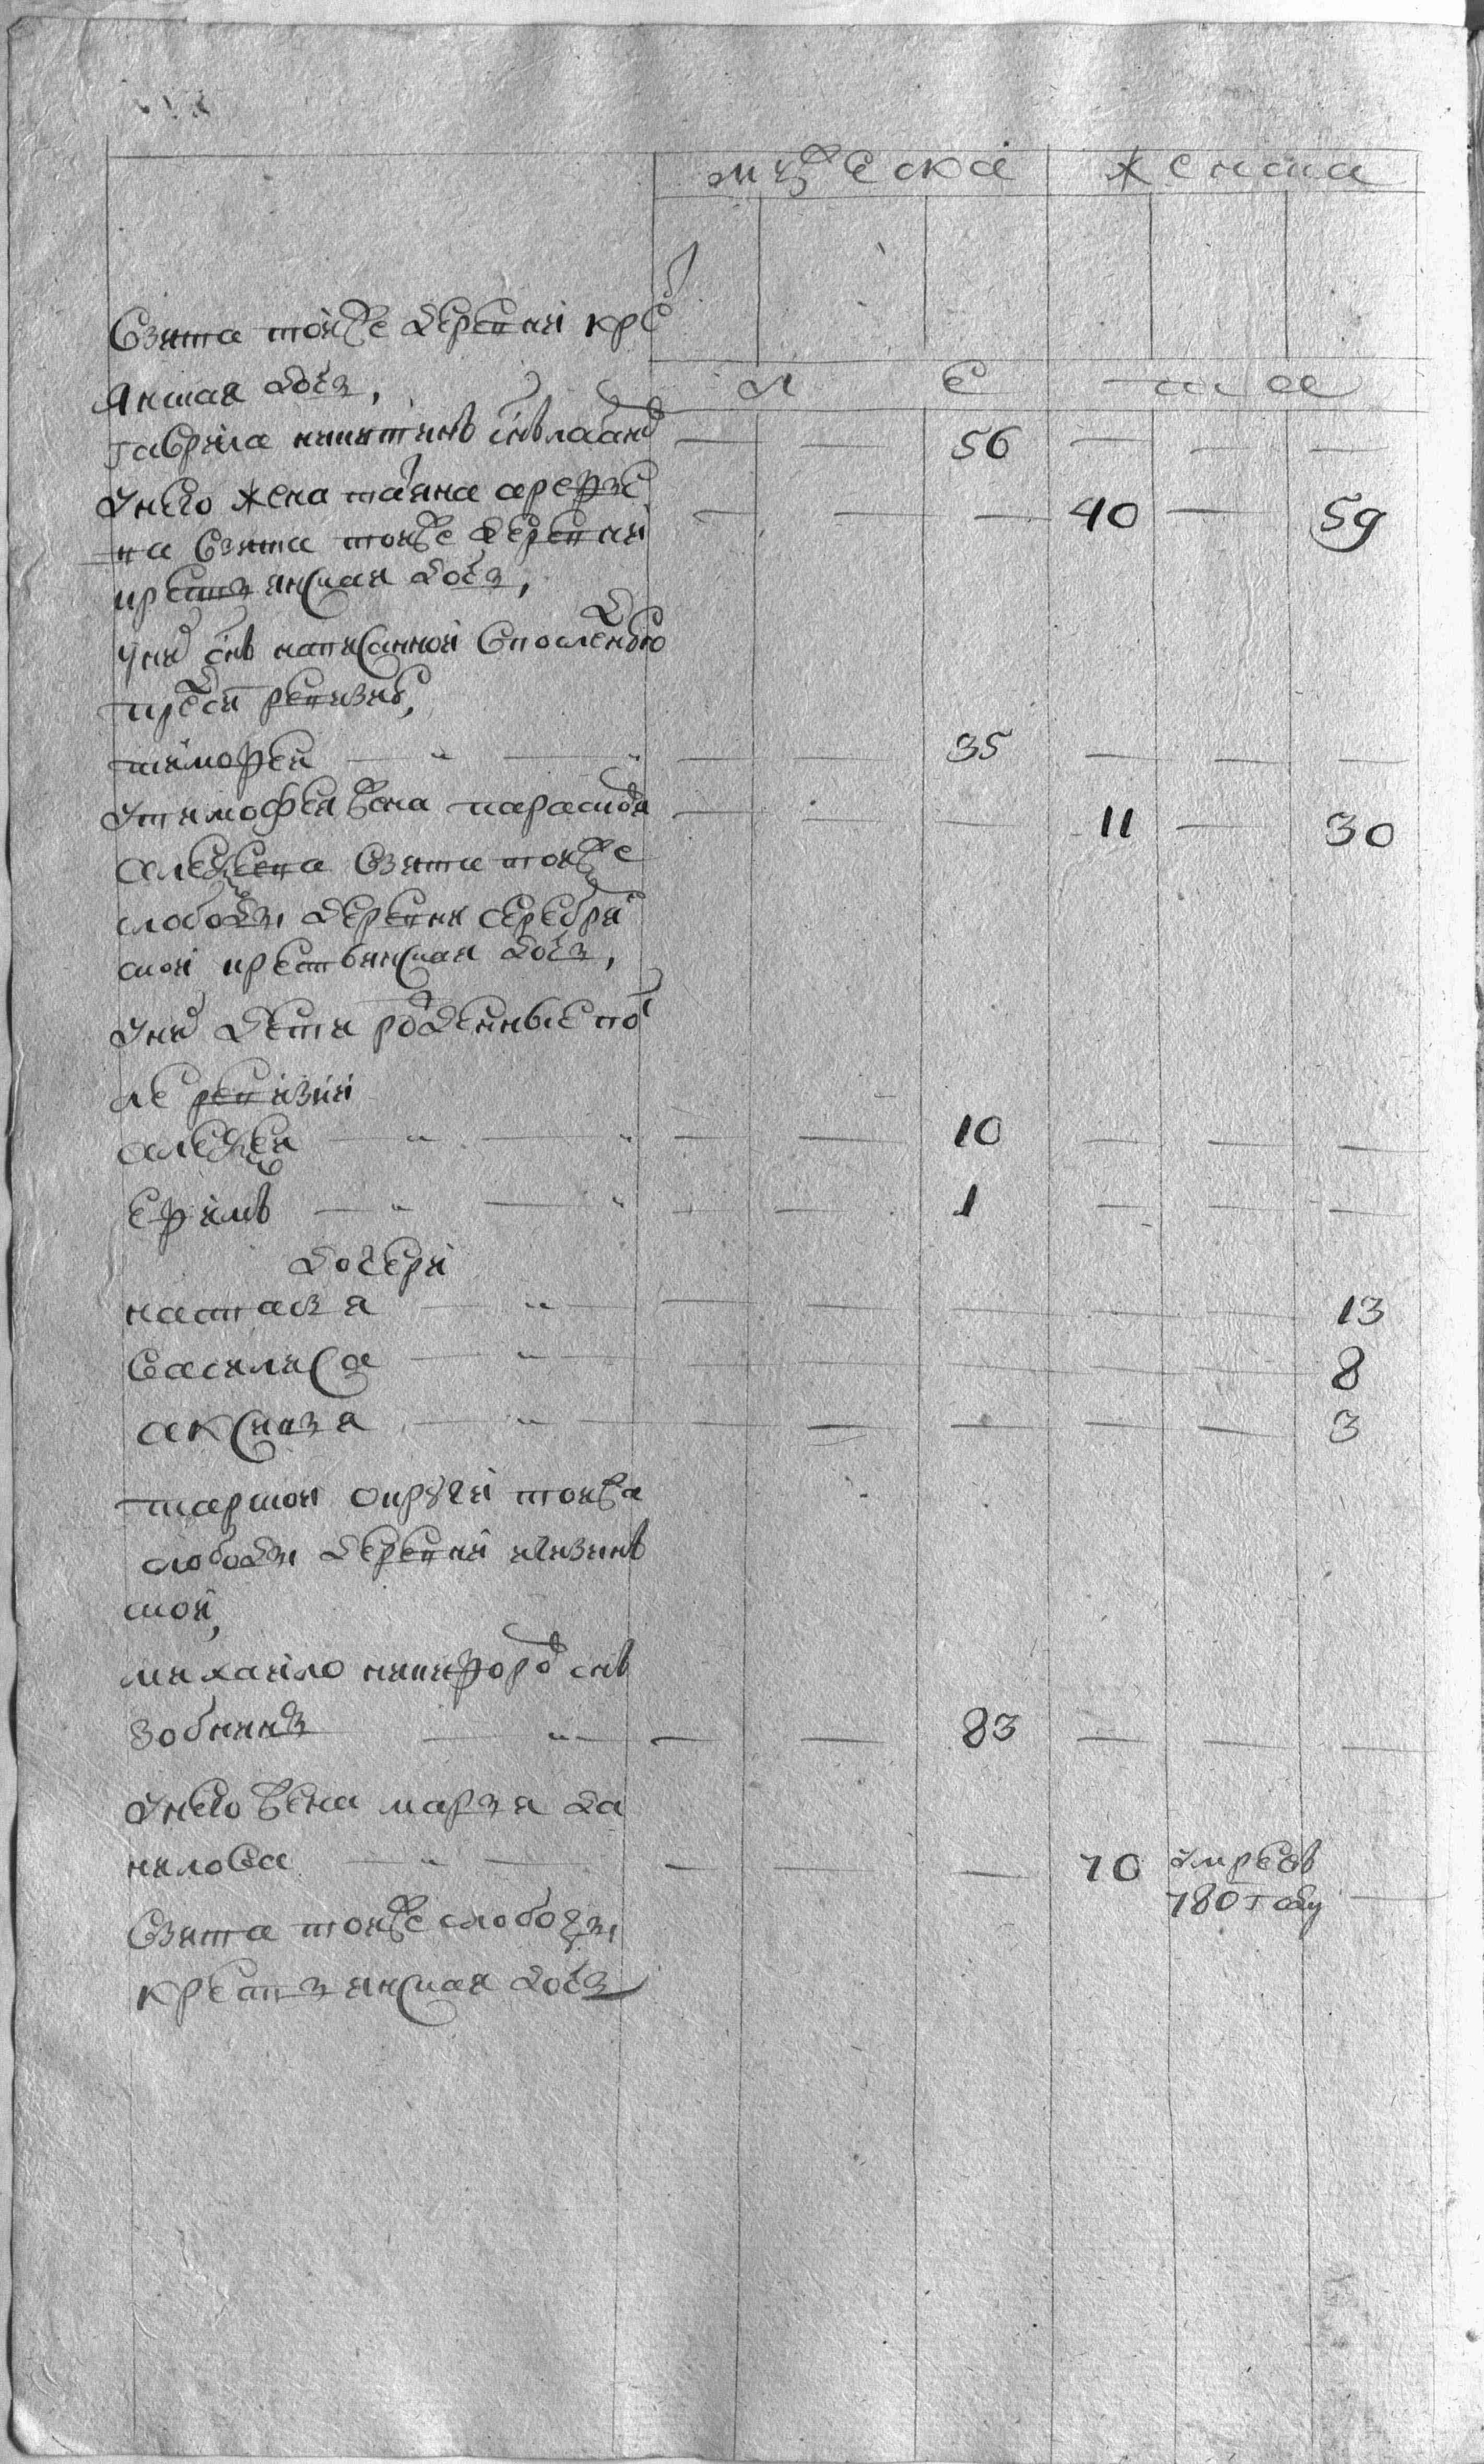 мужеска женска
взята тойже деревни кре
л е т а
стьянская дочь,
гаврила никитинъ снъ
56
у него жена татьяна арефье
40 59
ва взята тойже деревни
крестьянская дочь,
у них снъ написанной в последнюю
пред сим ревизию,
тимофей 35
у тимофея жена парасковья 11 30
алексеева взята тойже
слободы деревни серебрян
ской крестьянская дочь,
у них дети рожденные пос
ле ревизии
алексей 10
ефимъ 1
дочери
настасья 13
василиса 8
аксинья 3
тарской округи тойже
слободы деревни
ской,
михайло никифоров снъ
зобнинъ 83
у него жена марья да
нилова 70 умре въ
780 году
взята тойже слободы
крестьянская дочь